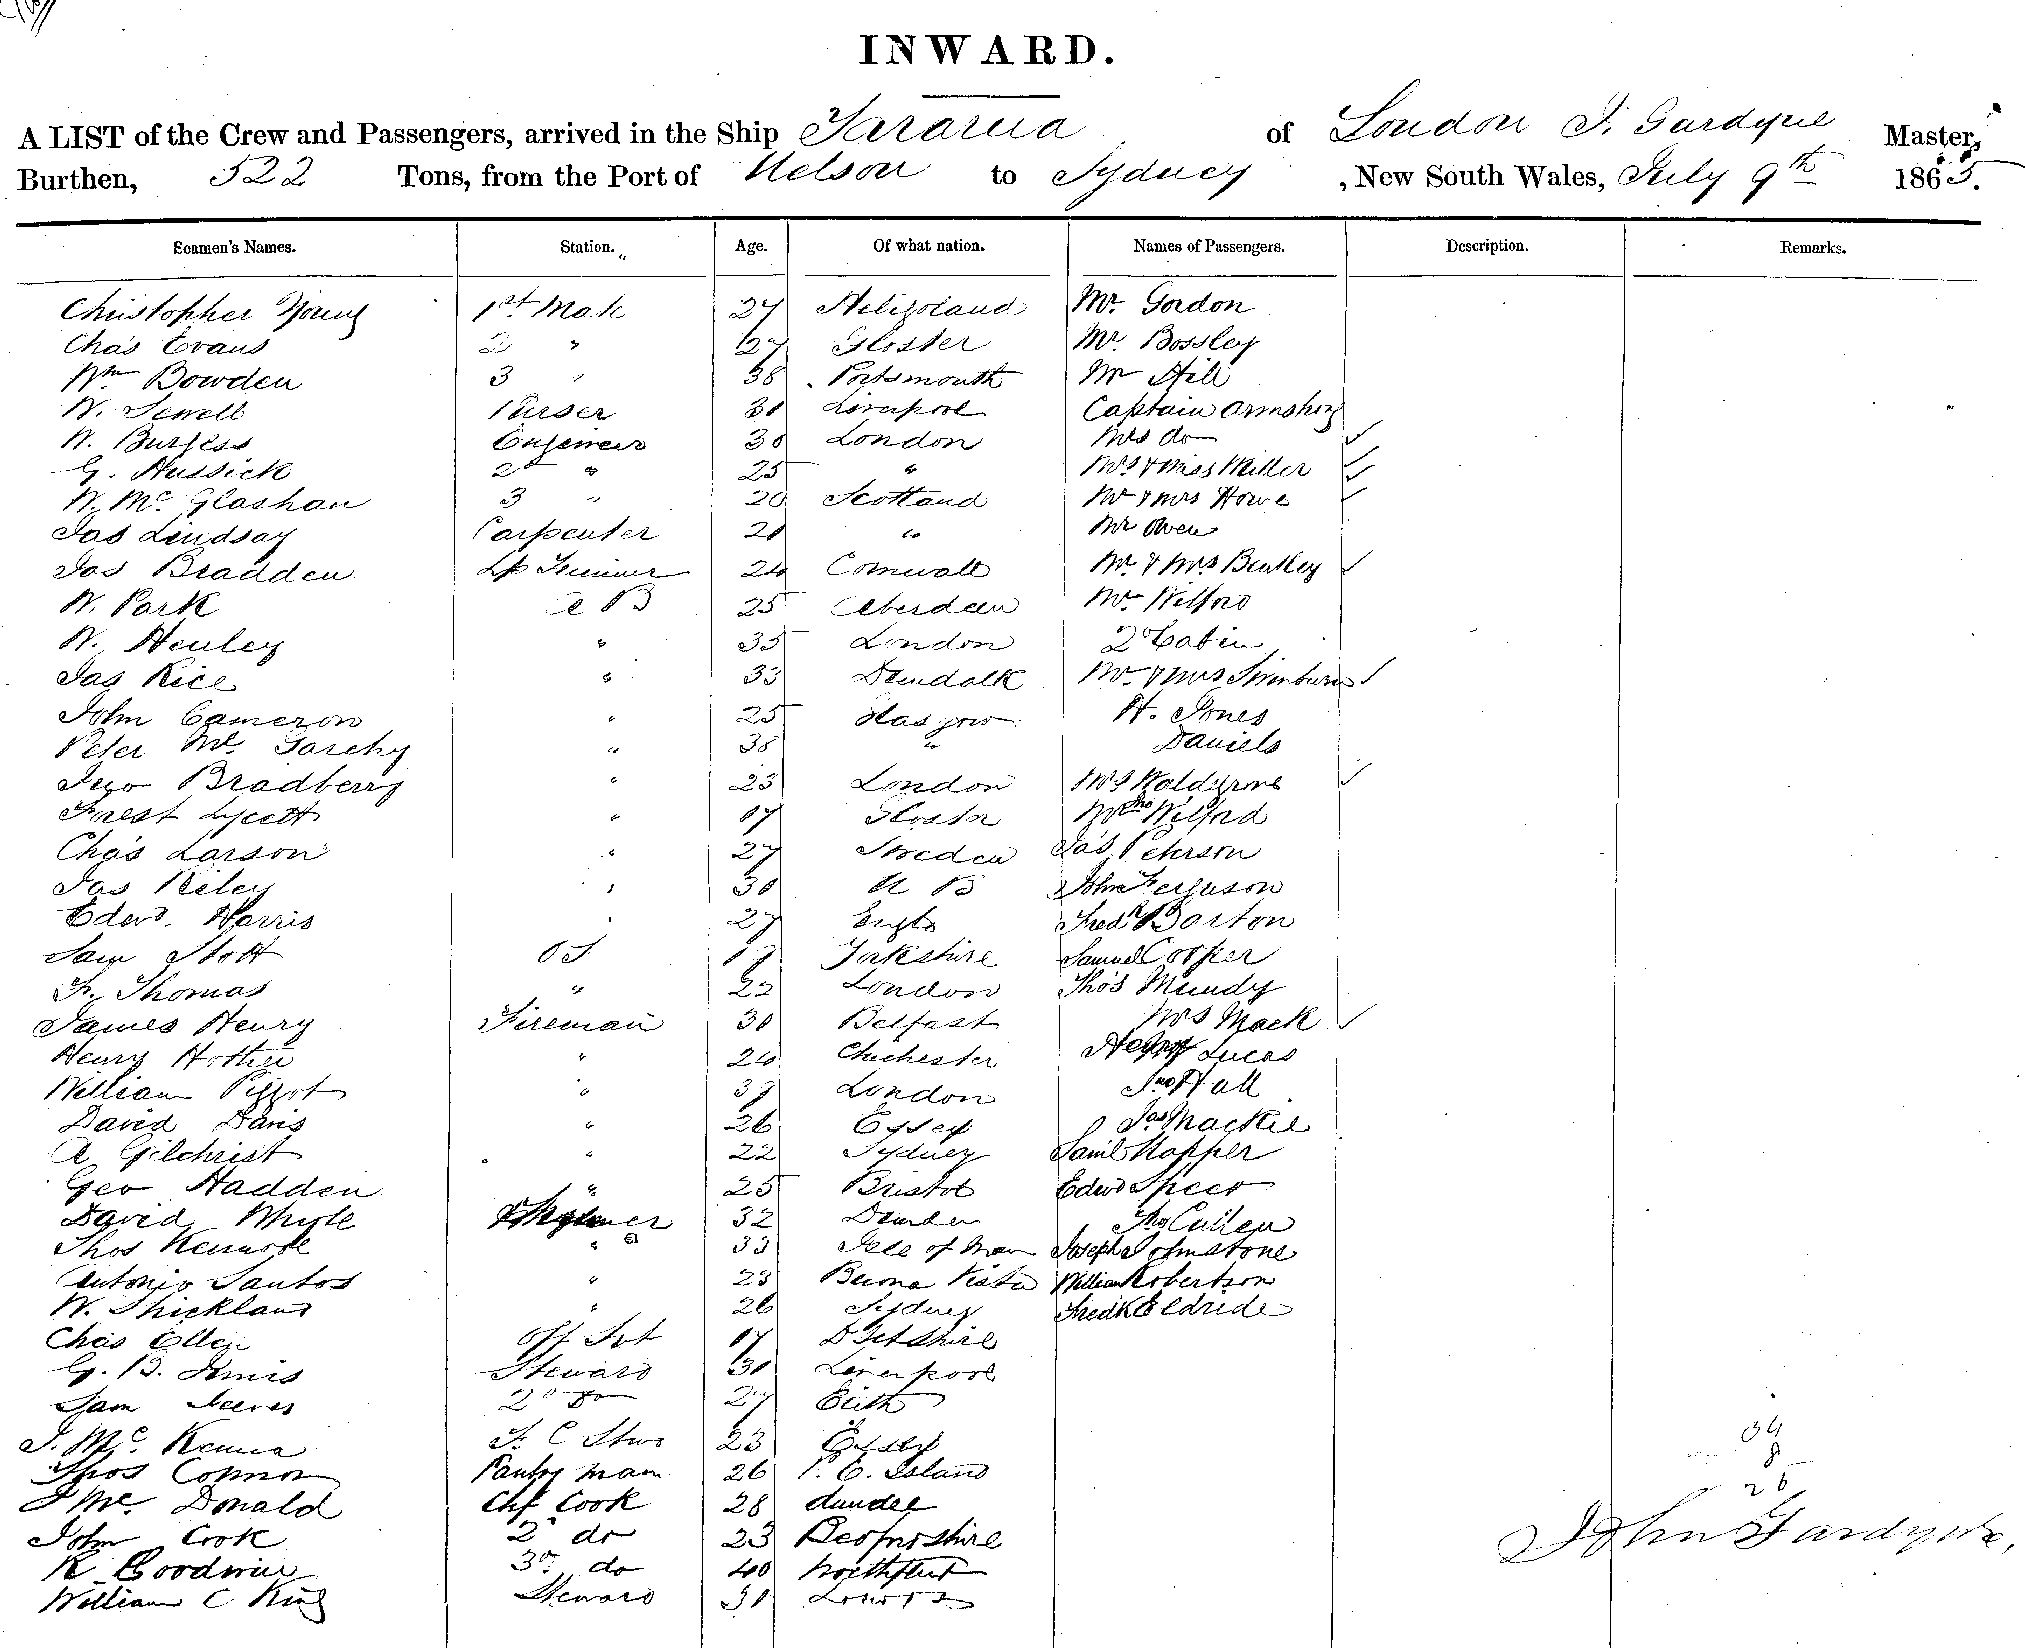 INWARD.
A LIST of the Crew and Passengers, arrived in the Ship Tararua of London J. Gardyne Master,
Burthen, 522 Tons, from the Port of Nelson to Sydney, New South Wales, July 9th 1865.
Seamen's Names. Station. Age. Of what nation. Names of Passengers. Description. Remarks.
Christopher Young 1st Mate 27 Heligoland Mr. Gordon
Chas Evans 2 " 27 Gloster Mr. Bossley
Wm Bowden 3 " 38 Portsmouth Mr Hill
W. Sewell Purser 30 Liverpool Captain Armstrong
W. Burgess Engineer 30 London Mrs do
G. Hussick 2d " 25 " Mrs & Miss Miller
W. Mc Glashan 3 " 20 Scotland Mr & Mrs Howe
Jas Lindsay Carpenter 20 " Mr Owen
Jas Bradden Lp Trimmer 24 Cornwall Mr. & Mrs Bentley
W. Park A B 25 Aberdeen Mr Wilford
W. Henley " 35 London 2d Cabin
Jas Rice " 33 Dundalk Mr. & Mrs
John Cameron " 25 Glasgow H. Jones
Peter Mc " 38 " Daniels
Geo Bradberry " 23 London Mrs
Lycett " 17 Gloster Wilford
Chas Larson " 27 Sweden Jas. Peterson
Jas Riley " 30 N B John Ferguson
Edwd. Harris " 27 Engld Fredk Borton
Sam Stott O S 19 Yorkshire Samuel Cooper
Fr. Thomas " 22 London Thos Mundy
James Henry Fireman 30 Belfast Mrs Mack
Henry " 24 Chichester Henry Lucas
William Piggot " 39 London Jno Hall
David Davis " 26 Essex Jas Mackie
A Gilchrist " 22 Sydney Saml Hopper
Geo Hadden " 25 Bristol Edwd
David White 32 Dundee Thos Cullen
Thos " 33 Isle of Man Joseph Johnstone
Antonio Santos " 23 Buena Vista William Robertson
W. Strickland " 26 Sydney Fredk Eldride
Chas Ellen Off Svt 17 Dsetshire
G. B. Steward 30 Liverpool
Sam 2d do 27
J. Mc. Kenna F. C Stwd 23 Essex
Thos Connor Pantry man 26 P. E. Island
J Mc. Donald Chf Cook 28 dundee
John Cook 2d do 23
R Goodwin 3d do 40 Northfleet
William C King Steward 30
34
8
26
John Gardyne